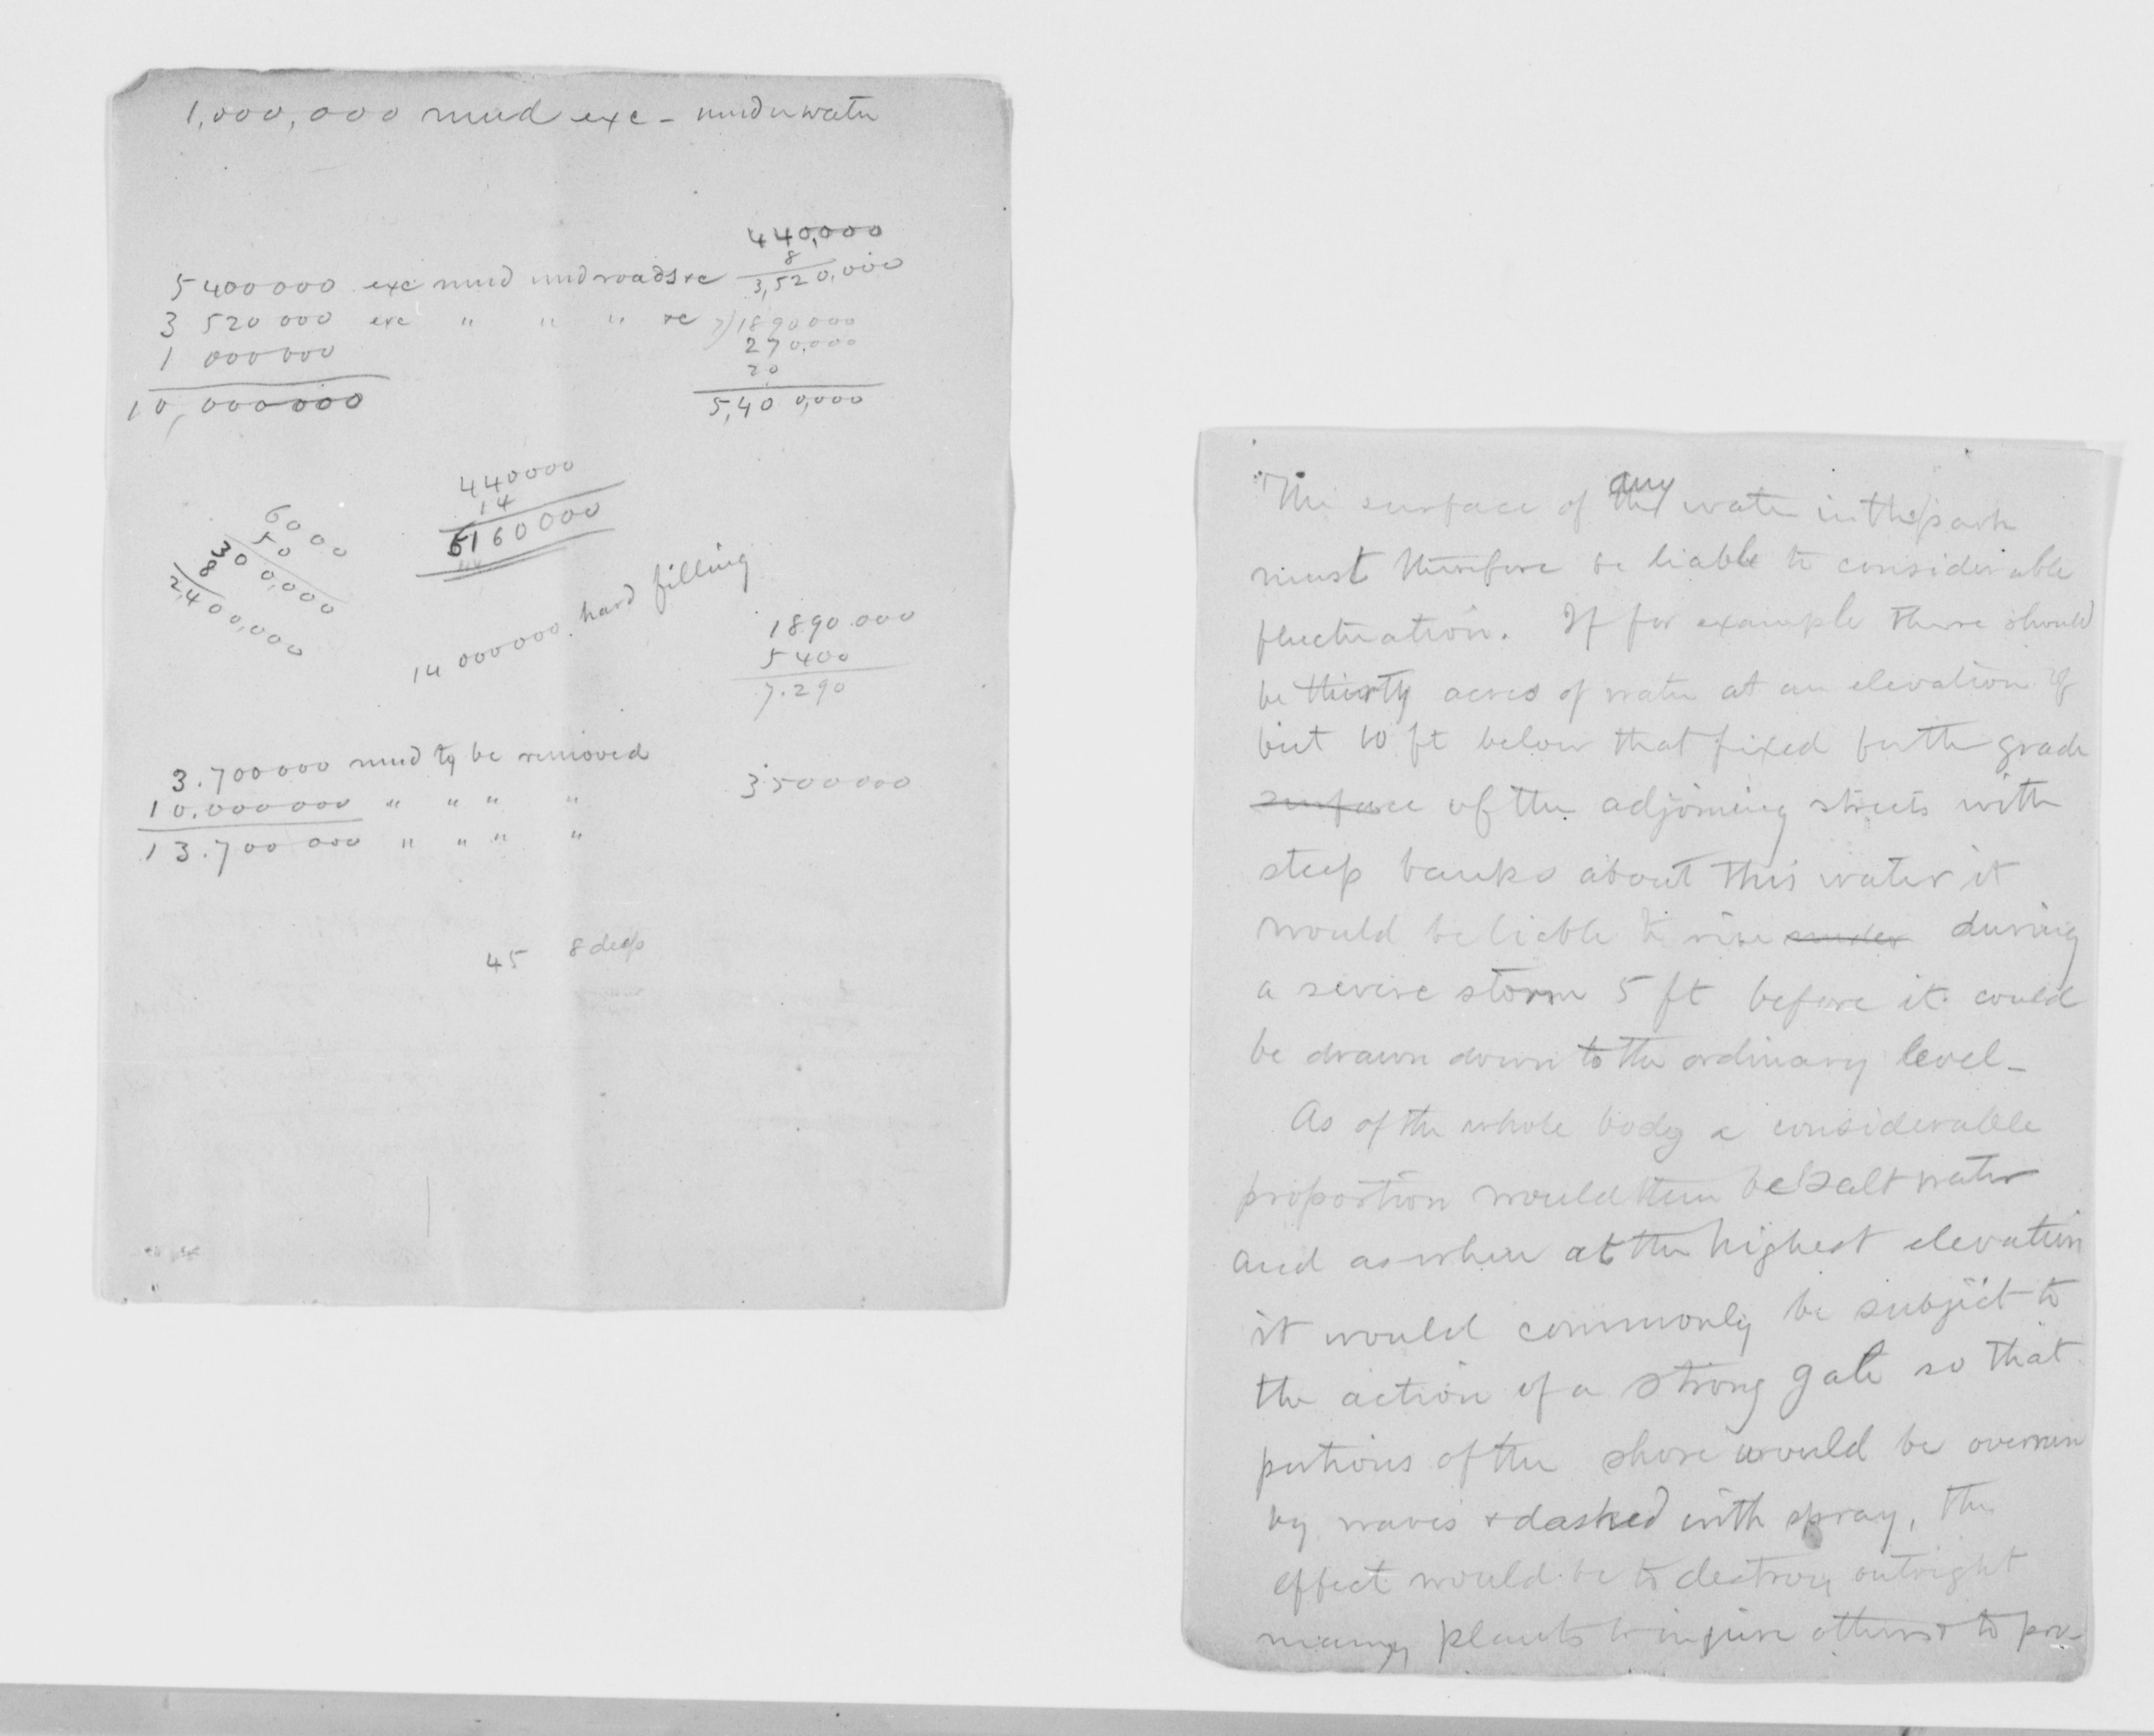 1,000,000 mud exc - underwater
440,000
8
3,520,000
5400000 exc mud und roads &c
3 520 000 exc " " " &c 7)1890000
1 000000
270,000
20
10,000000
5,400,000
440000
14
6160000
6000
50
300,000
8
2,400,000
14 000000. hard filling
1890.000
5400
7.290
3.700000 mud to be removed
3500000
10.000000 " " " "
13.700 000 " " " "
45 8 deep
The surface of any the water in the park
must therefore be liable to considerable
fluctuation. If for example there should
be thirty acres of water at an elevation of
but 10 ft below that fixed for the grade
surface of the adjoining streets with
steep banks about this water it
would be liable to rise under during
a severe storm 5 ft before it could
be drawn down to the ordinary level -
As of the whole body a considerable
proportion would then be salt water
and as when at the highest elevation
it would commonly be subject to
the action of a strong gale so that
portions of the shore would be overrun
by waves & dashed with spray, the
effect would be to destroy outright
many plants to injure others & to pre-